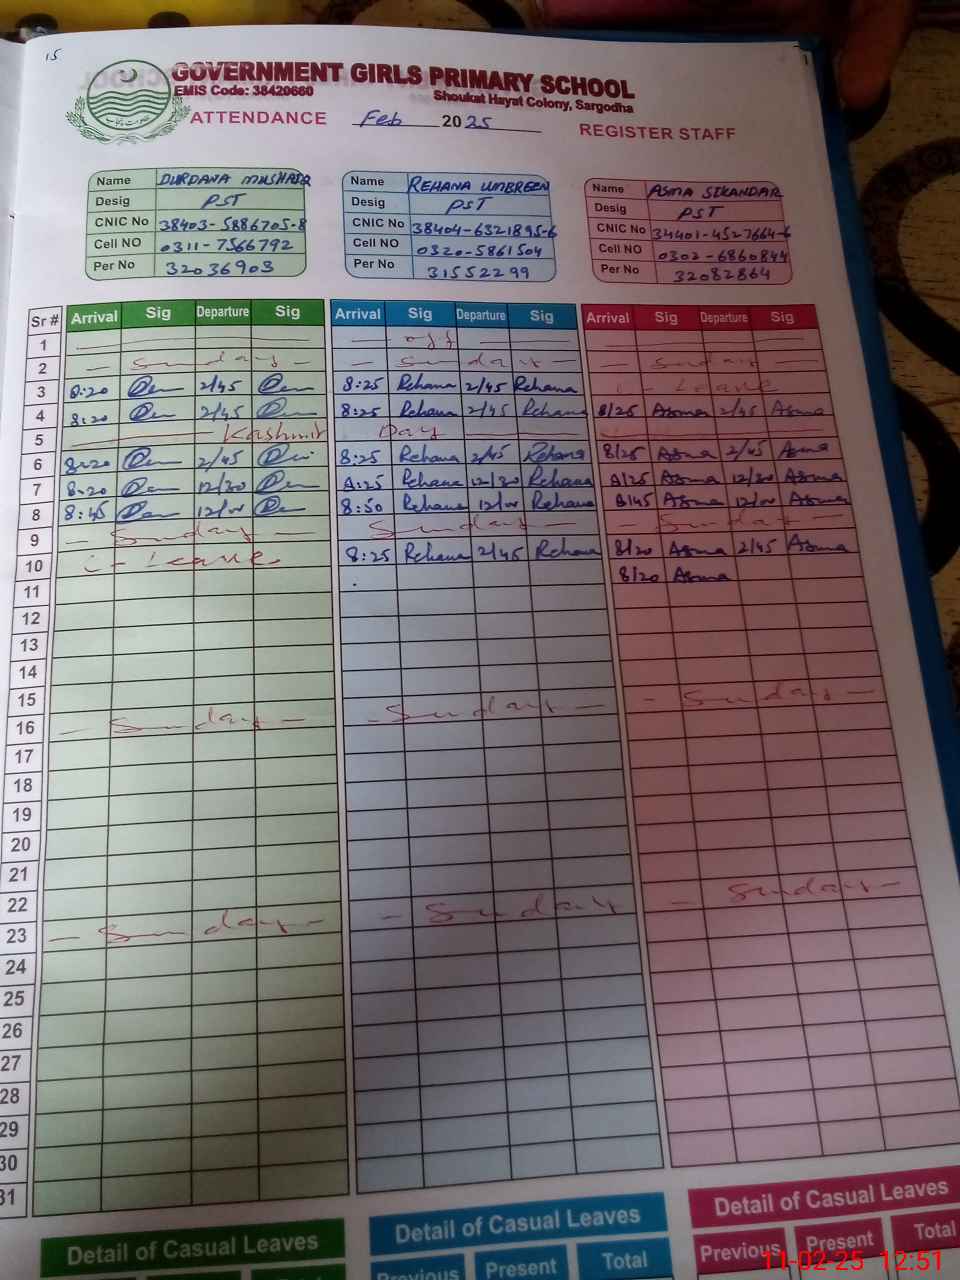 15
GOVERNMENT GIRLS PRIMARY SCHOOL
EMIS Code: 38420660
Shoukat Hayat Colony, Sargodha
ATTENDANCE Feb 2025 REGISTER STAFF
Name DURDANA MUSHTAQ Name REHANA UMBREEN Name ASMA SIKANDAR
Desig PST Desig PST Desig PST
CNIC No 38403-5886705-8 CNIC No 38404-6321895-6 CNIC No 34401-4527664-6
Cell NO 0311-7566792 Cell NO 0320-5861504 Cell NO 0302-6860844
Per No 32036903 Per No 31552299 Per No 32082864
Sr # Arrival Sig Departure Sig Arrival Sig Departure Sig Arrival Sig Departure Sig
1 off
2 - Sunday - - Sunday - - Sunday
3 8:20 2/45 8:25 Rehana 2/45 Rehana c-Leave
4 8:20 2/45 8:25 Rehana 2/45 Rehana 8/25 Asma 2/45 Asma
5 Kashmir Day
6 8:20 2/45 8:25 Rehana 2/45 Rehana 8/25 Asma 2/45 Asma
7 8:20 12/30 8:25 Rehana 12/30 Rehana 8/25 Asma 12/30 Asma
8 8:45 12/00 8:50 Rehana 12/00 Rehana 8/45 Asma 12/00 Asma
9 - Sunday - Sunday - - Sunday -
10 c-Leave 8:25 Rehana 2/45 Rehana 8/20 Asma 2/45 Asma
11 8/20 Asma
12
13
14
15
16 - Sunday - - Sunday - - Sunday -
17
18
19
20
21
22
23 - Sunday - - Sunday - Sunday -
24
25
26
27
28
29
30
31
Detail of Casual Leaves Detail of Casual Leaves Detail of Casual Leaves
Previous Present Total Previous Present Total
11-02-25 12:51